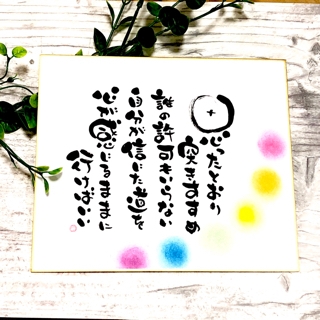 思ったとおり
突きすすめ
誰の許可もいらない
自分が信じた道を
心が感じるままに
行けばいい